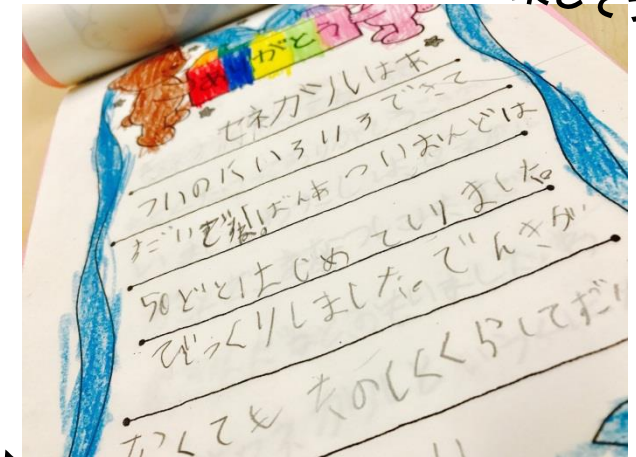 ありがとう
セネガルはあ
ついのにいろいろできて
いちばんあついおんどは
50どとはじめてしりました。
びっくりしました。でんきが
なくてもたのしくくらしてす